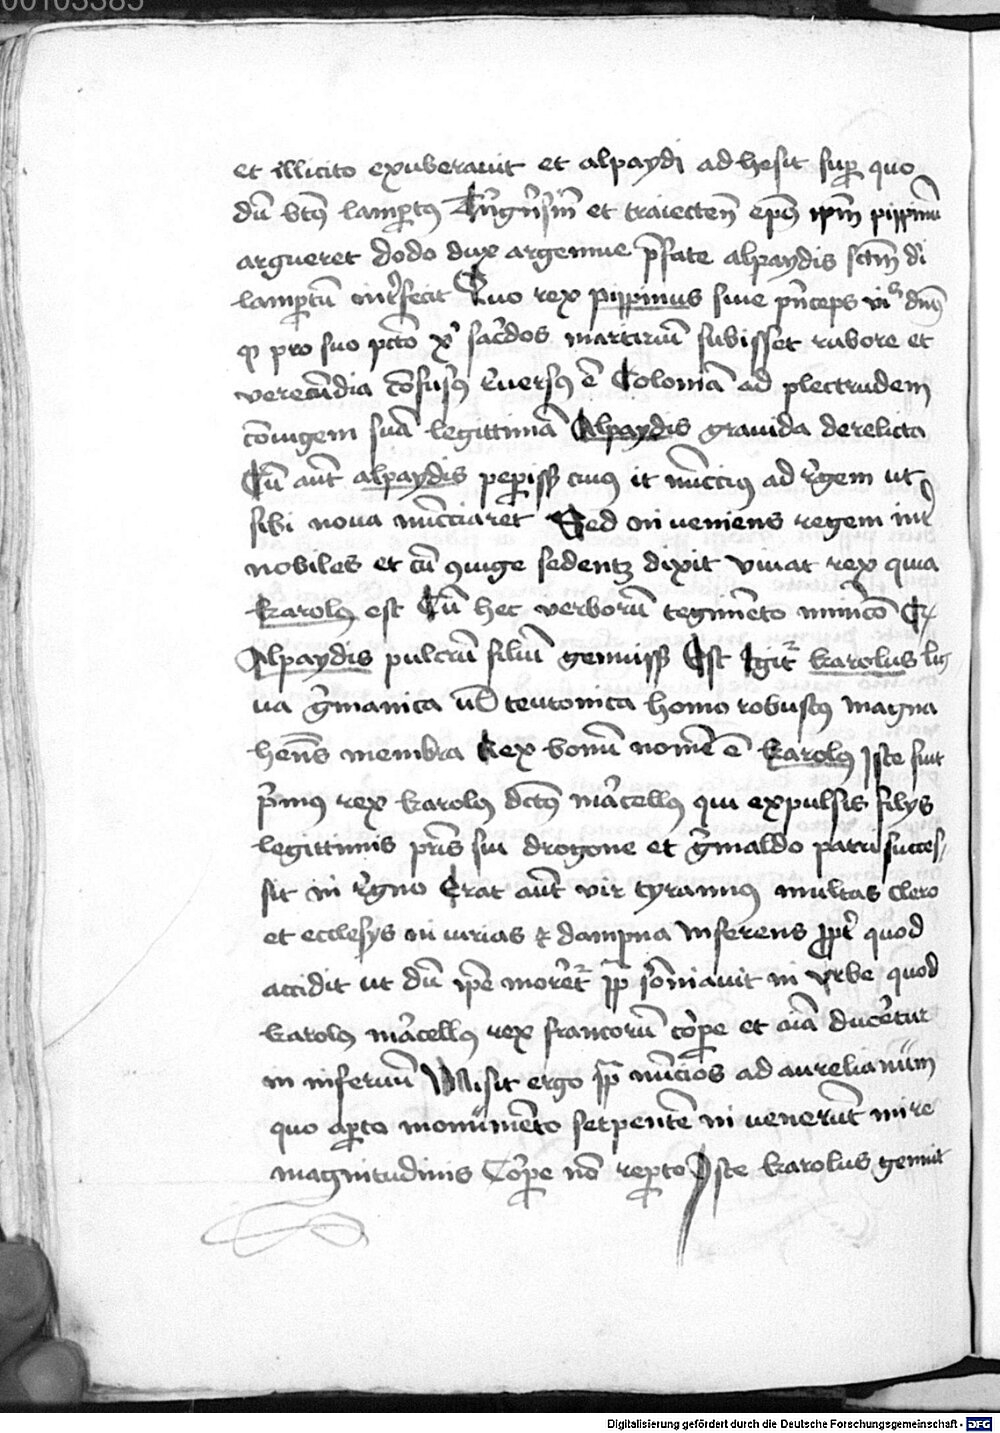 00103385
et illicito exuberauit et alpaydi adhesit sup̄ quo
dū bt̄s lamp̄tus et traiecten̄ ep̄s ip̄m pippinū
argueret dodo dux argenme p̄fate alpaydis sc̄tm̄ di
lamp̄tū int̓fecit Quo rex pippinus siue p̄nceps
ꝙ pro suo pcc̄to xp̄i sac̓dos martiriū subisset rubore et
verecūdia cōfusus r̓uersus ē Coloniā ad plectrudem
cōiugem suā legittimā Alpaydis grauida derelicta
Cū aūt alpaydis pep̄iss̄ it nūccius ad r̓gem ut
sibi noua nūcciaret Sed inueniens regem int̓
nobiles et cū ꝯiuge sedentē dixit viuat rex quia
karolus est Cū hec verborū tegimēto
Alpaydis pulcrū filiū genuiss̄ Est Igit̄ karolus lig
ua g̓manica ul̄ teutonica homo robustus magna
hen̄s membra Rex bonū nomē ē karolus Iste fuit
p̓mus rex karolus dc̄us mārcellus qui expulsis filijs
legittimis pr̄is sui drogone et g̓maldo patri succes
sit in r̓gno Erat aūt vir tyrannus multas clero
et ecclesijs iniurias et dampna inferens ꝓpt̓ quod
accidit ut dū ip̄e moret̄ pp̄ sōniauit in vrbe quod
karolus mārcellus rex francorū cōrpe et aīa duc̓etur
in infernū Misit ergo pp̄ nūcios ad aurelianum
quo ap̄to monumēto serpentē inuenerūt mire
magnitudinis Cōrpe nō rep̄to Iste karolus genuit
Digitalisierung gefördert durch die Deutsche Forschungsgemeinschaft - DFG